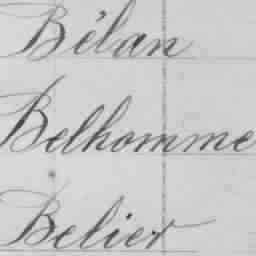 Bélan
Belhomme
Belier